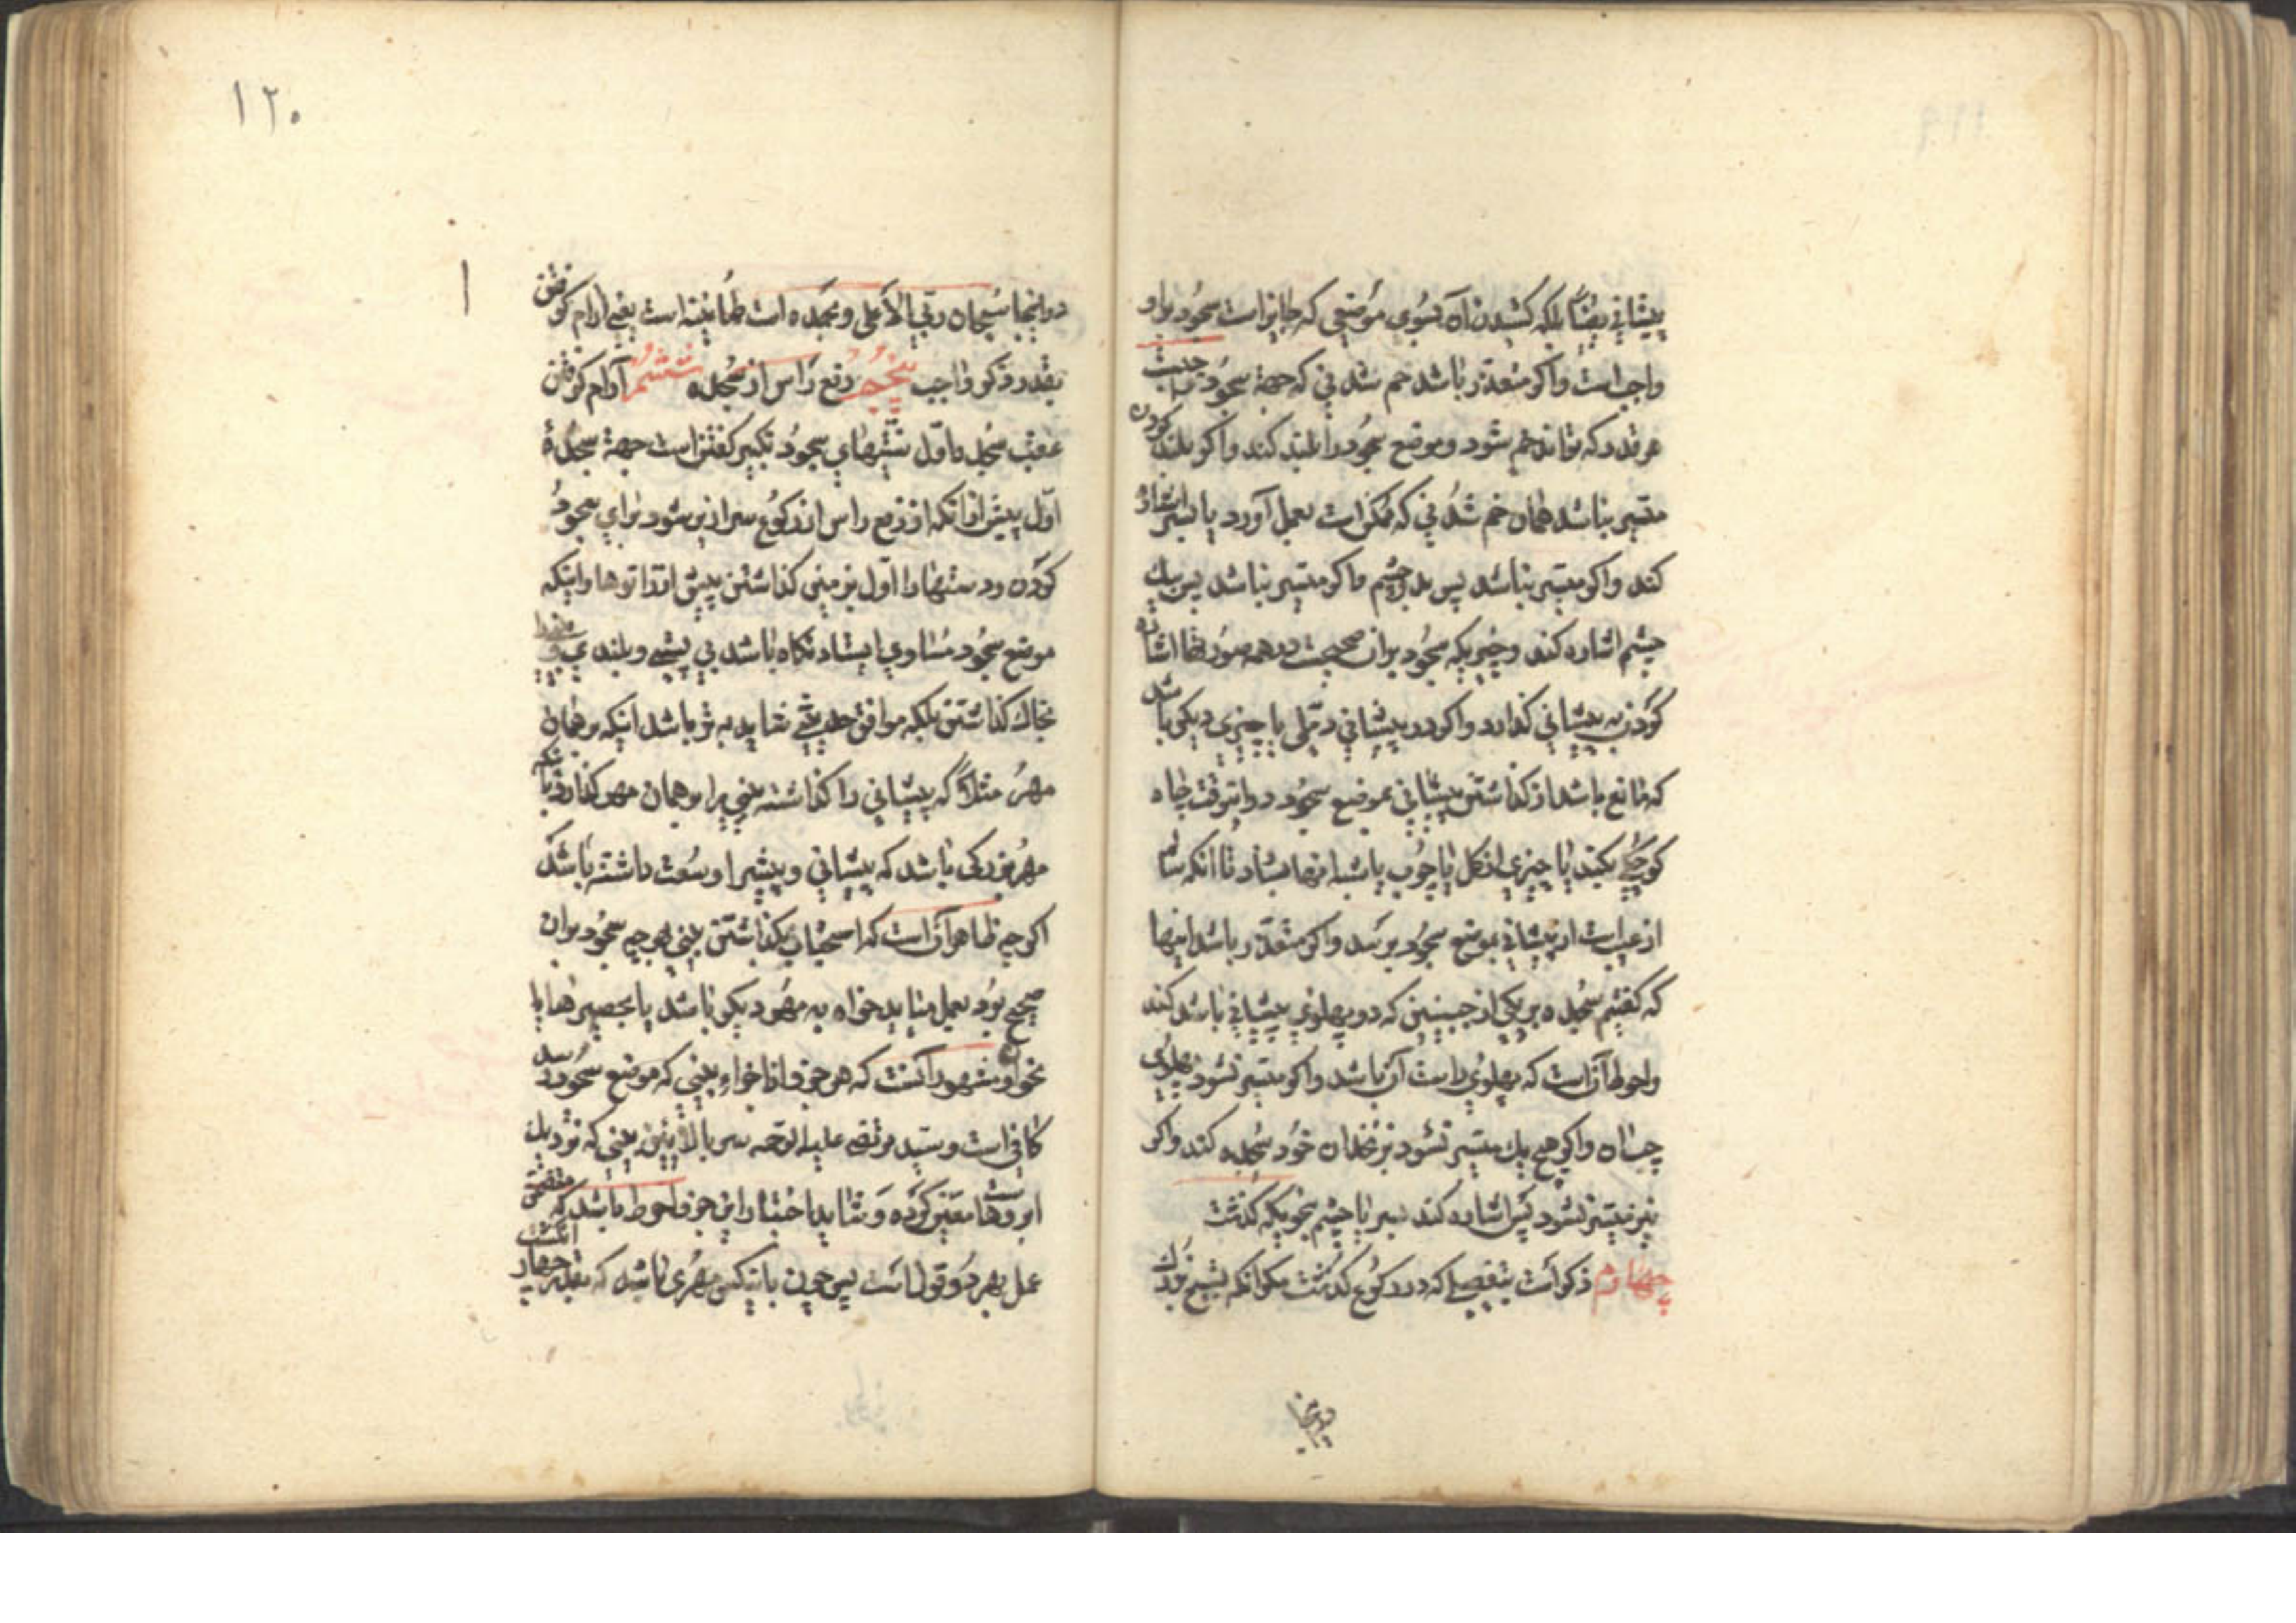 پیشانی بضا بلکه کشیدن آن بسوی موضعی که جایز است سجود بر او
واجب است و اگر متعذر باشد خم شدنی که جهة سجود است
هر قدر که تواند خم شود و موضع سجود را بلند کند و اگر بلند کردن
متیسر نباشد همان خم شدنی که ممکن است بعمل آورد یا بسر اشاره
کند و اگر متیسر نباشد پس بدو چشم و اگر متیسر نباشد پس بیک
چشم اشاره کند و چیزیکه سجود بر آن صحیحست در همه صورتها اشاره
کردن به پیشانی گذارد و اگر در پیشانی دملی یا چیزی دیگر باشد
که مانع باشد از گذاشتن پیشانی بموضع سجود در اینوقت چاه
کوچکی بکند یا چیزی از گل یا چوب یا شبه اینها بسازد تا آنکه سالم
از عیب است از پیشانی بموضع سجود برسد و اگر متعذر باشد اینها
که گفتیم سجده بر یکی از جبینین که دو پهلوی پیشانی باشد کند
واحوط آنست که پهلوی راست آن باشد و اگر متیسر نشود پهلوی
چپ آن و اگر هیچ یک متیسر نشود بزنخدان خود سجده کند و اگر
نیز متیسر نشود پس اشاره کند بسر یا چشم بنحویکه گذشت
چهارم ذکر است بتفصیلی که در رکوع گذشت مگر آنکه تسبیح بزرک
در اینجا
۱۲۰
در اینجا سبحان ربی الاعلی و بحمده است طمانینه است یعنی آرام گرفتن
بقدر ذکر واجب پنجم رفع راس از سجده ششم آرام گرفتن
عقب سجده اول سنتهای سجود تکبیر گفتن است جهة سجدهٔ
اول پیش از آنکه از رفع راس از رکوع سرازیر شود برای سجود
کردن و دستها را اول بزمین گذاشتن پیش از زانوها و اینکه
موضع سجود مساوی ایستادنگاه باشد بی پستی و بلندی و
بخاک گذاشتن بلکه موافق حدیثی شاید بهتر باشد اینکه بر همان
مهر مثلا که پیشانی را گذاشته بینی را بر همان مهر گذارد یا
مهر بزرکی باشد که پیشانی و بینی را وسعت داشته باشد
اگر چه ظاهر آن است که استحباب گذاشتن بینی بهر چه سجود بر آن
صحیح بود بعمل میاید خواه به مهر دیگر باشد یا بحصیرها یا
نحو آن و مشهور آنست که هر جزو از اجزاء بینی که موضع سجود رسد
کافی است و سید مرتضی علیه الرحمه سر بالائین بینی که نزدیک
ابروها است معین کرده و شاید اختیار این جزو احوط باشد که مقتضی
عمل بهر دو قول است پس چون با اینکس مهری باشد که بقدر چهار انگشت